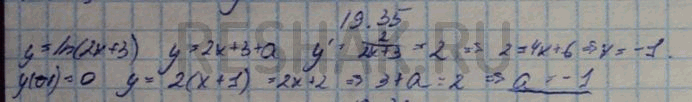 19.35
y=ln(2x+3) y=2x+3+a y'=2/(2x+3)=2 => 2=4x+6 => x=-1.
y(-1)=0 y=2(x+1)=2x+2 => 3+a=2 => a=-1
RESHAK.RU